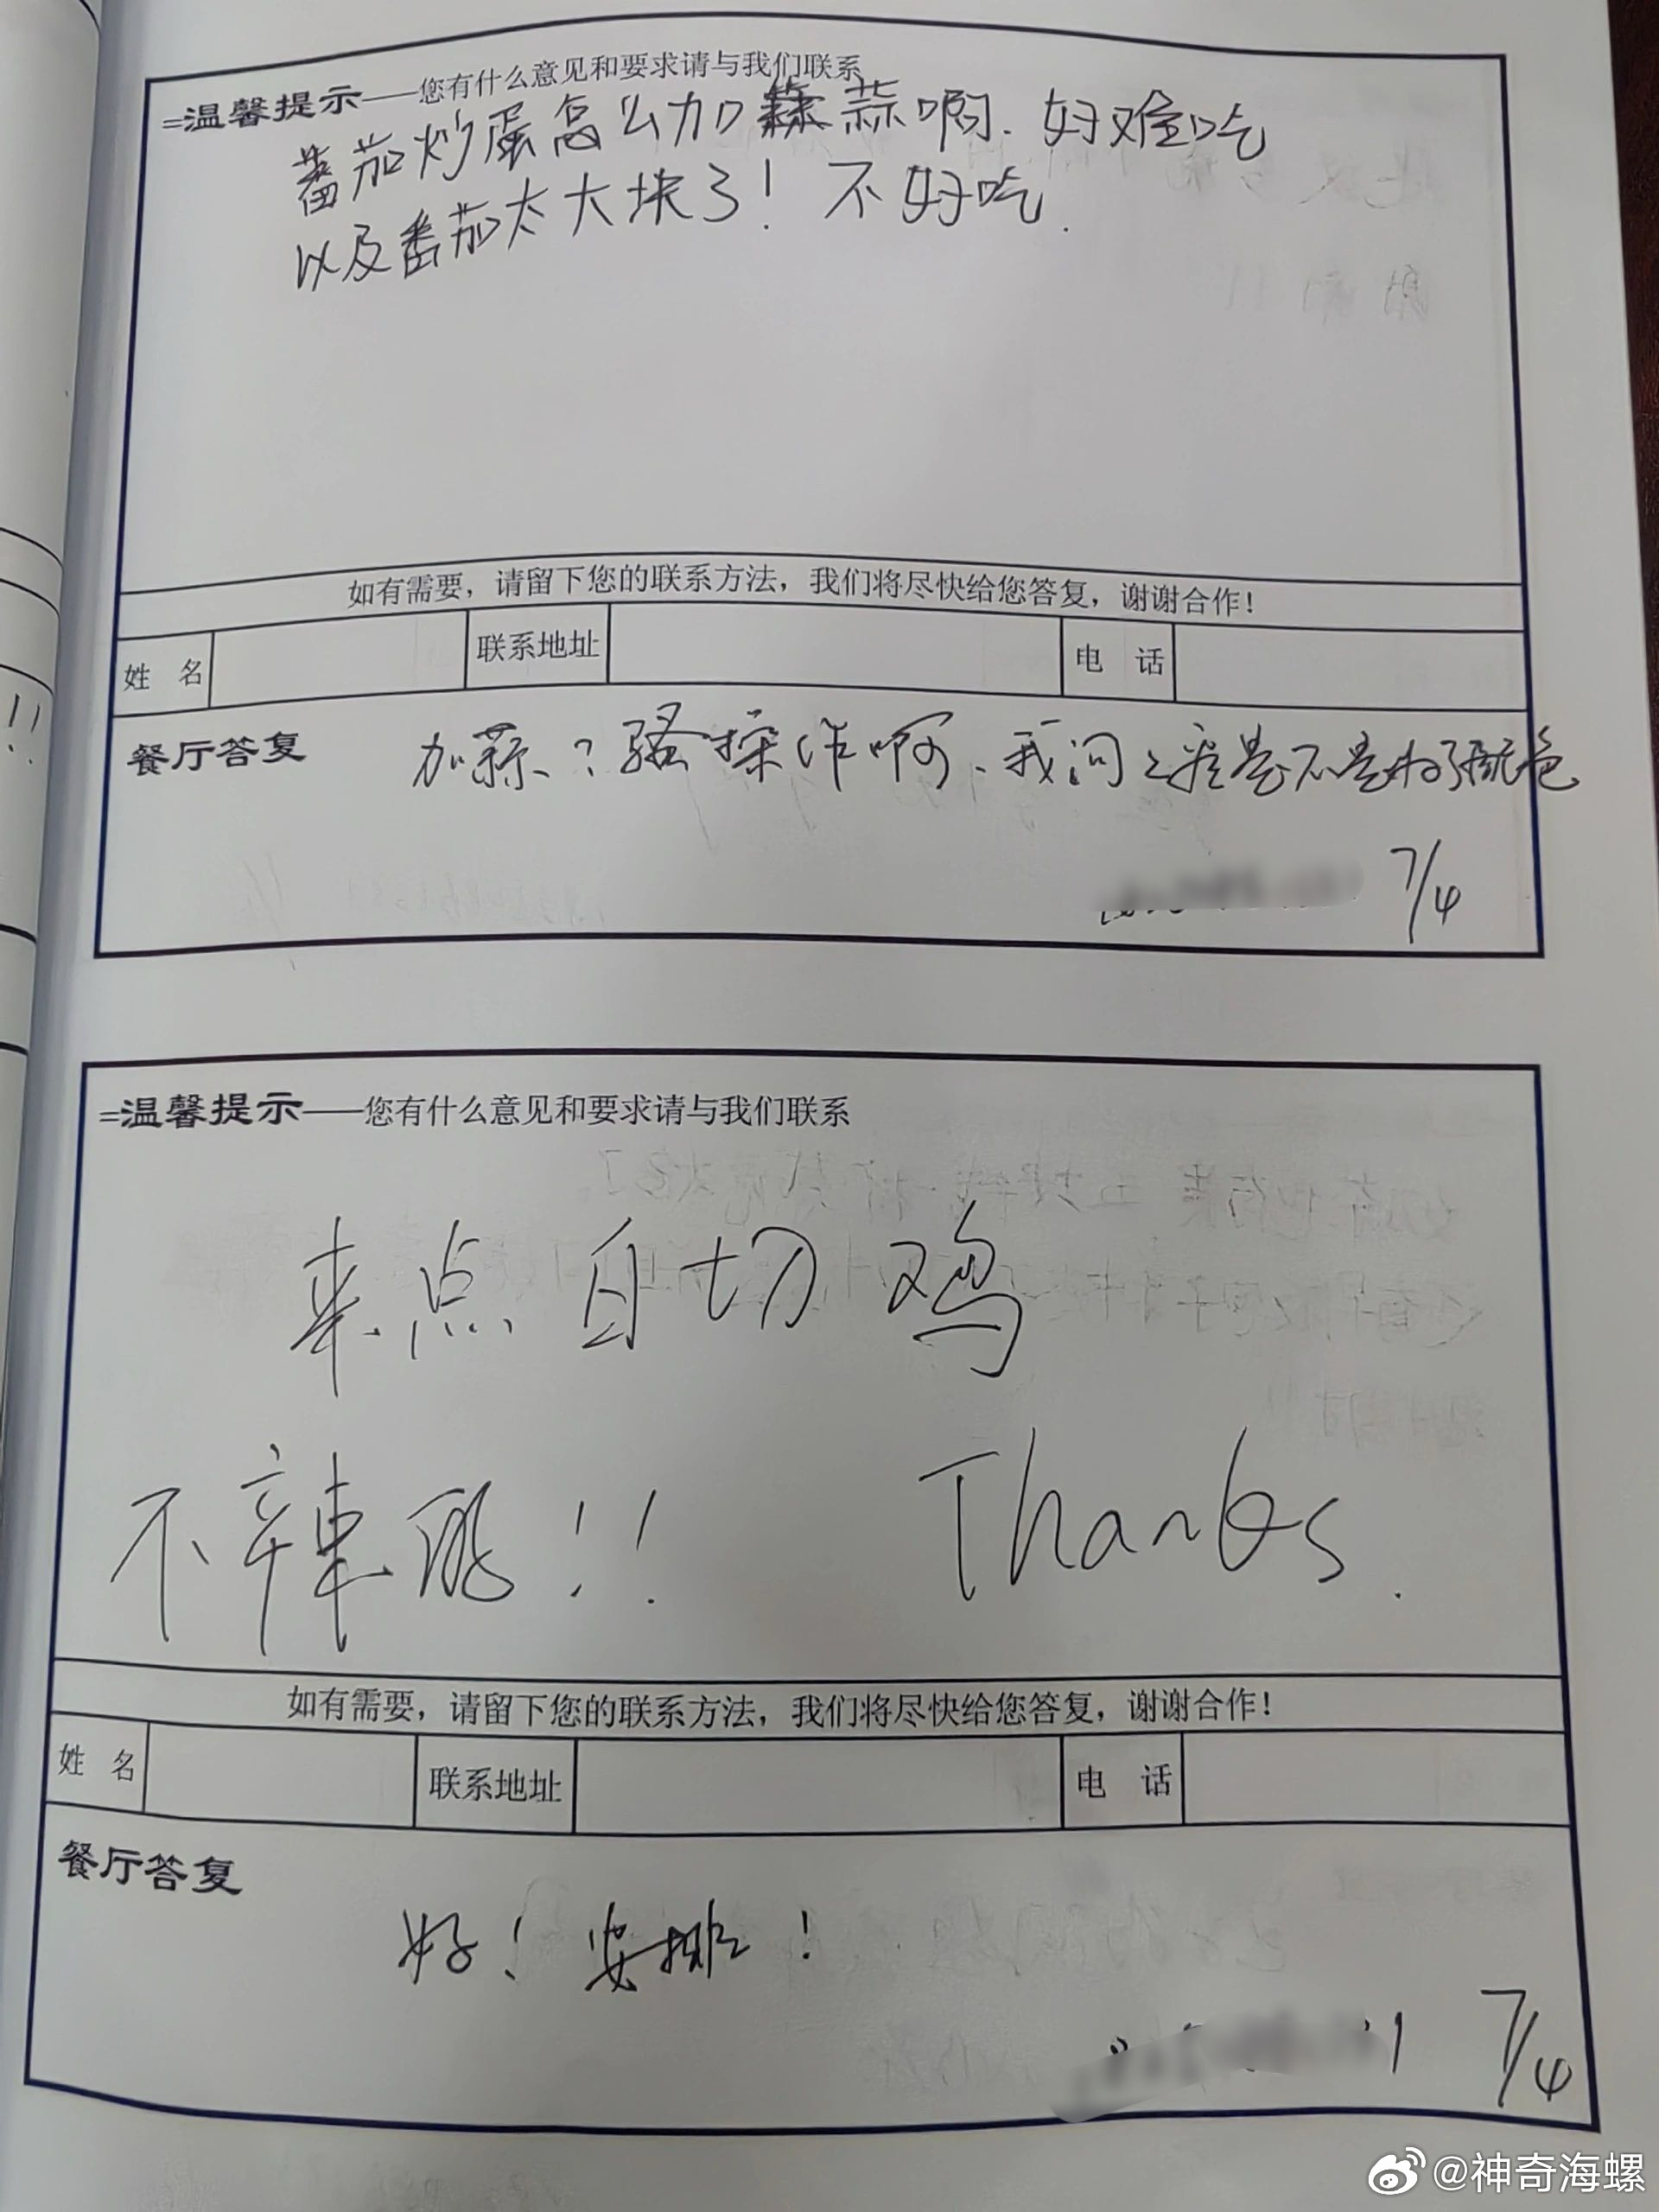 =温馨提示——您有什么意见和要求请与我们联系
蕃茄炒蛋怎么加蒜啊.好难吃
以及番茄太大块了！不好吃.
如有需要，请留下您的联系方法，我们将尽快给您答复，谢谢合作！
姓 名 联系地址 电 话
餐厅答复 加蒜？骚操作啊、我问之窗是不是为了
7/4
=温馨提示——您有什么意见和要求请与我们联系
来点白切鸡
不辣的！！ Thanks.
如有需要，请留下您的联系方法，我们将尽快给您答复，谢谢合作！
姓 名 联系地址 电 话
餐厅答复 好！安排！
7/4
@神奇海螺